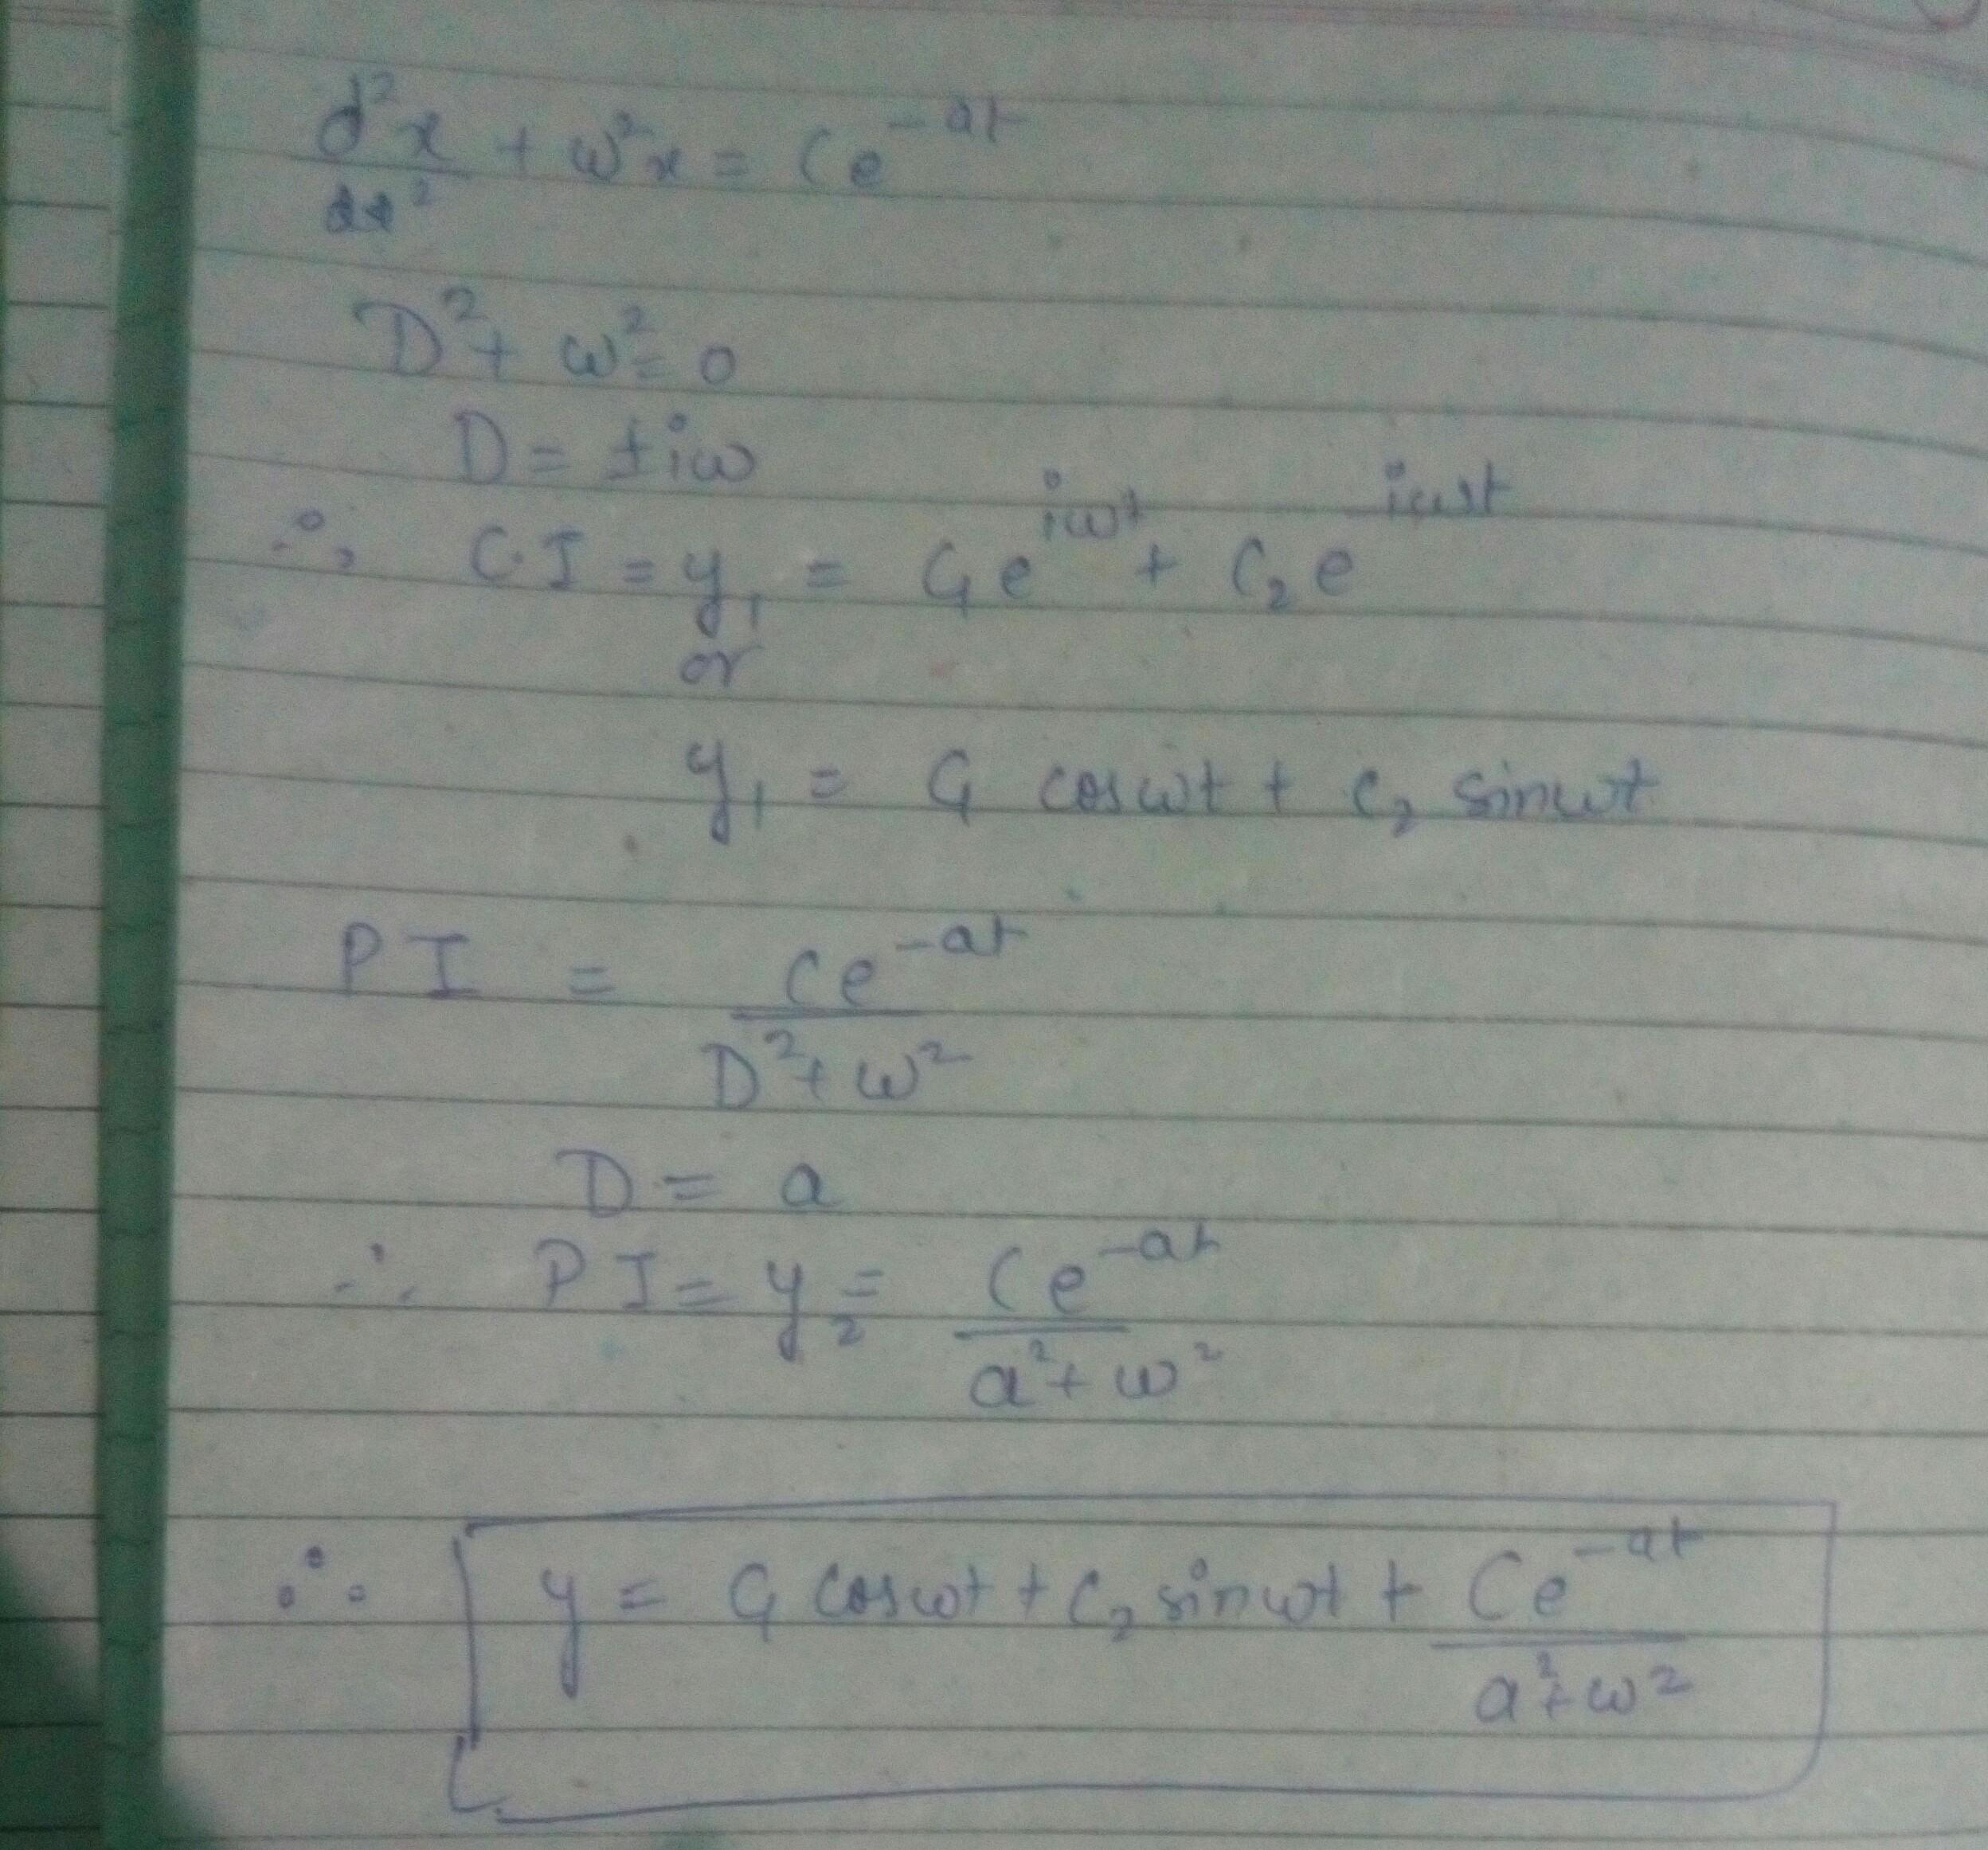 d²x/dt² + ω²x = Ce^-at
D² + ω² = 0
D = ±iω
∴ C.I = y₁ = C₁e^iωt + C₂e^-iωt
or
y₁ = C₁ cosωt + C₂ sinωt
PI = Ce^-at / D² + ω²
D = a
∴ PI = y₂ = Ce^-at / a² + ω²
∴ y = C₁ cosωt + C₂ sinωt + Ce^-at / a² + ω²